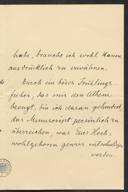 habe, brauche ich wohl kaum
ausdrücklich zu erwähnen.
Durch ein böses Frühlings-
fieber, das mir den Athem
beengt, bin ich daran gehindert,
das Manuscript persönlich zu
überreichen, was Euer Hoch-
wohlgeboren gewiss entschuldigen
werden.